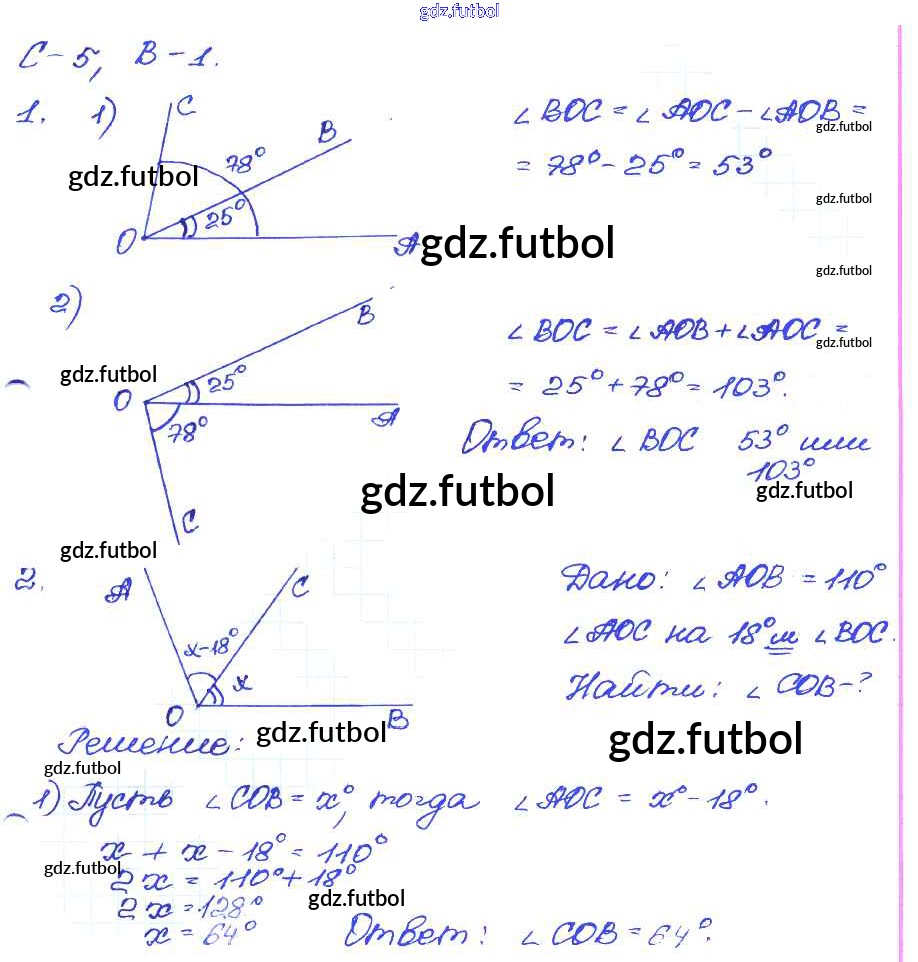 gdz.futbol
С-5, В-1.
1. 1)
C
B
78°
25°
O
A
∠BOC = ∠AOC - ∠AOB =
= 78° - 25° = 53°
gdz.futbol
gdz.futbol
gdz.futbol
gdz.futbol
gdz.futbol
2)
B
25°
O
A
78°
C
∠BOC = ∠AOB + ∠AOC =
= 25° + 78° = 103°.
Ответ: ∠BOC 53° или
103°
gdz.futbol
gdz.futbol
gdz.futbol
gdz.futbol
gdz.futbol
2.
A
C
x-18°
x
O
B
Дано: ∠AOB = 110°
∠AOC на 18° м ∠BOC.
Найти: ∠COB-?
gdz.futbol
gdz.futbol
Решение:
gdz.futbol
1) Пусть ∠COB = x°, тогда ∠AOC = x° - 18°.
x + x - 18° = 110°
gdz.futbol
2x = 110° + 18°
2x = 128°
gdz.futbol
x = 64°
Ответ: ∠COB = 64°.